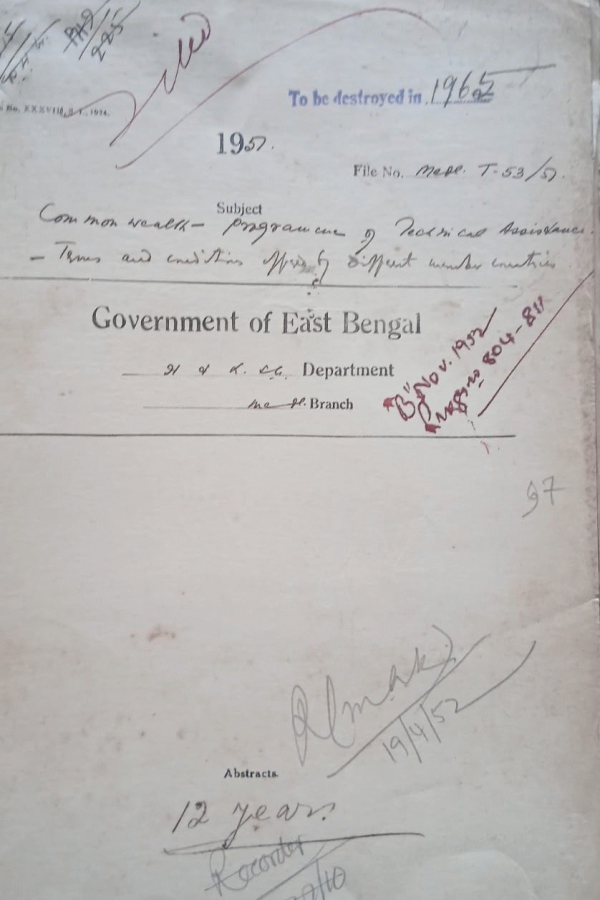 Filed
To be destroyed in 1965
1951.
File No. Medl. T-53/51.
Subject
Commonwealth - programme of Technical Assistance.
- Terms and conditions offered by different member countries
Government of East Bengal
H & L. S.G. Department
Medl. Branch
"B" Nov. 1952
804-811
97
19/4/52
Abstracts.
12 years
Recorder